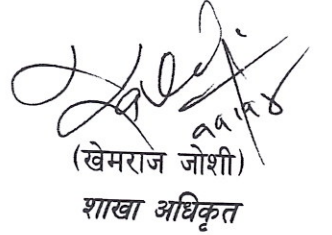 ११।१४
(खेमराज जोशी)
शाखा अधिकृत